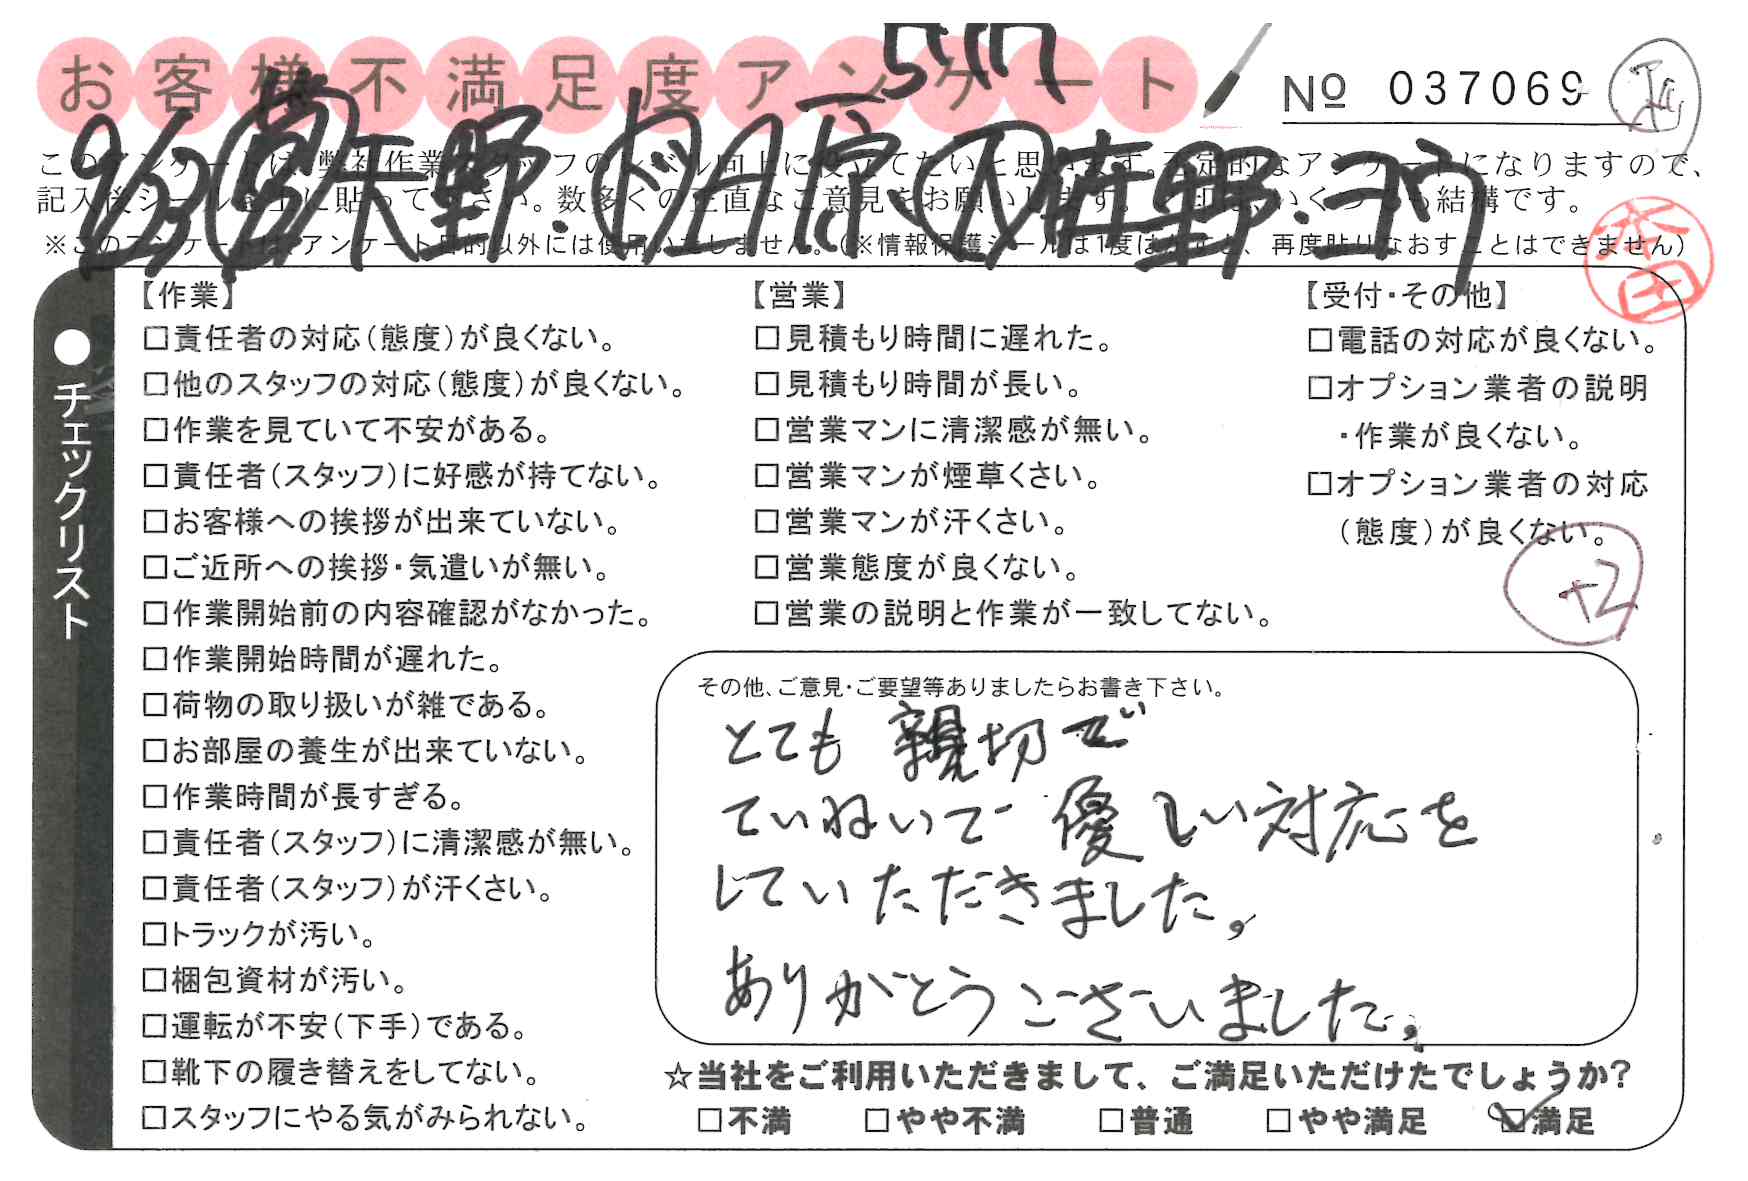 お客様不満足度アンケート
№ 037069
このアンケートは、弊社作業スタッフのレベル向上に役立てたいと思います。否定的なアンケートになりますので、
記入後シールを上に貼って下さい。数多くの正直なご意見をお願いします。
※このアンケートは、アンケート目的以外には使用いたしません。(※情報保護シールは1度はがすと、再度貼りなおすことはできません)
9/3 大野.
在野.ヨウ
●チェックリスト
【作業】
□責任者の対応(態度)が良くない。
□他のスタッフの対応(態度)が良くない。
□作業を見ていて不安がある。
□責任者(スタッフ)に好感が持てない。
□お客様への挨拶が出来ていない。
□ご近所への挨拶・気遣いが無い。
□作業開始前の内容確認がなかった。
□作業開始時間が遅れた。
□荷物の取り扱いが雑である。
□お部屋の養生が出来ていない。
□作業時間が長すぎる。
□責任者(スタッフ)に清潔感が無い。
□責任者(スタッフ)が汗くさい。
□トラックが汚い。
□梱包資材が汚い。
□運転が不安(下手)である。
□靴下の履き替えをしてない。
□スタッフにやる気がみられない。
【営業】
□見積もり時間に遅れた。
□見積もり時間が長い。
□営業マンに清潔感が無い。
□営業マンが煙草くさい。
□営業マンが汗くさい。
□営業態度が良くない。
□営業の説明と作業が一致してない。
【受付・その他】
□電話の対応が良くない。
□オプション業者の説明
・作業が良くない。
□オプション業者の対応
(態度)が良くない。
+2
その他、ご意見・ご要望等ありましたらお書き下さい。
とても親切で
ていねいで優しい対応を
していただきました。
ありがとうございました。
☆当社をご利用いただきまして、ご満足いただけたでしょうか?
□不満 □やや不満 □普通 □やや満足 ☑満足